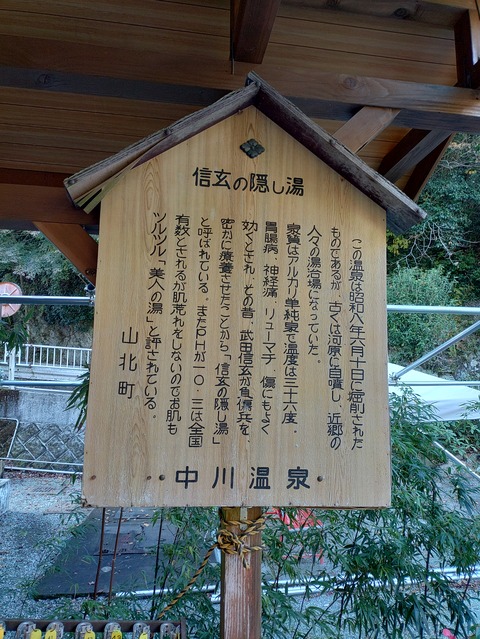 信玄の隠し湯
この温泉は昭和八年六月十日に掘削された
ものであるが、古くは河原に自噴し、近郷の
人々の湯治場になっていた。
泉質はアルカリ単純泉で温度は三十六度・
胃腸病、神経痛、リューマチ、傷にもよく
効くとされ、その昔、武田信玄が負傷兵を
密かに療養させたことから「信玄の隠し湯」
と呼ばれている。またPHが一〇・三は全国
有数とされるが肌荒れをしないのでお肌も
ツルツル「美人の湯」と評されている。
山北町
中川温泉